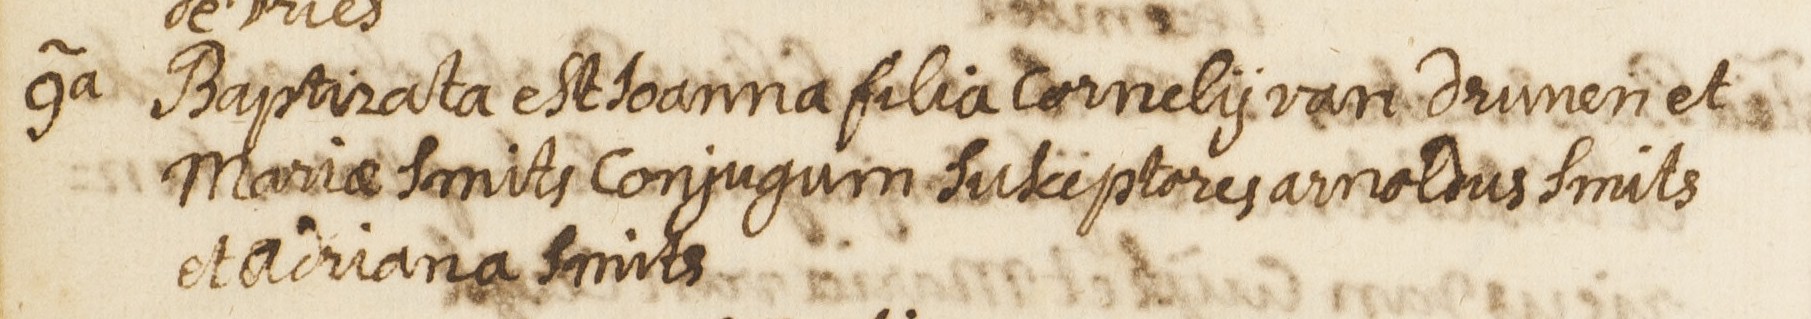 de Vries
9a Baptizata est Joanna filia Cornelij van Drunen et
Mariæ Smits Conjugum Susceptores arnoldus Smits
et Adriana Smits